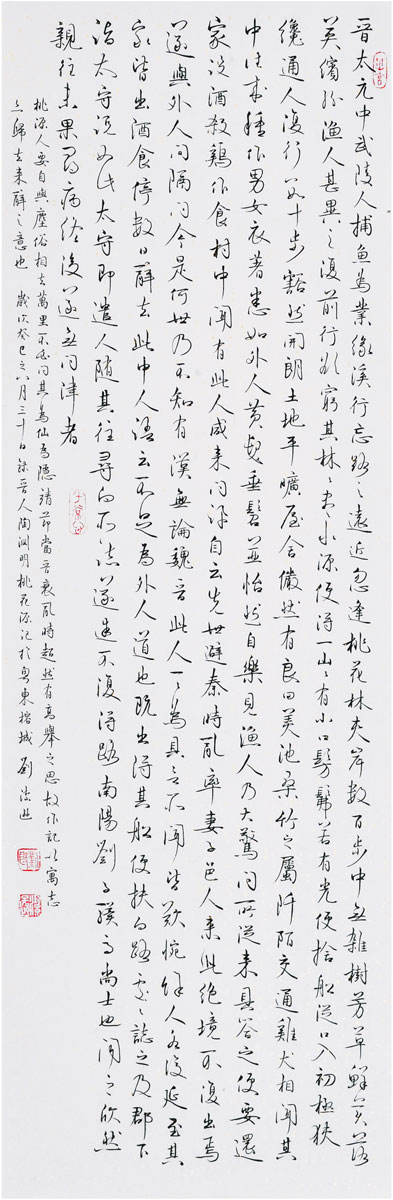 晉太元中武陵人捕魚為業緣溪行忘路之遠近忽逢桃花林夾岸數百步中無雜樹芳草鮮美落
英繽紛漁人甚異之復前行欲窮其林々盡水源便得一山々有小口髣髴若有光便捨船從口入初極狹
纔通人復行數十步豁然開朗土地平曠屋舍儼然有良田美池桑竹之屬阡陌交通雞犬相聞其
中往來種作男女衣著悉如外人黃髮垂髫並怡然自樂見漁人乃大驚問所從來具答之便要還
家設酒殺鷄作食村中聞有此人咸來問訊自云先世避秦時亂率妻子邑人來此絕境不復出焉
遂與外人間隔問今是何世乃不知有漢無論魏晉此人一一為具言所聞皆歎惋餘人各復延至其
家皆出酒食停數日辭去此中人語云不足為外人道也既出得其船便扶向路處々誌之及郡下
詣太守說如此太守即遣人隨其往尋向所誌遂迷不復得路南陽劉子驥高尚士也聞之欣然
親往未果尋病終後遂無問津者
桃源人要自與塵俗相去萬里不必問其為仙為隱靖節當晉衰亂時超然有高舉之思故作記以寓志
亦歸去來辭之意也 歲次癸巳之八月三十日錄晉人陶淵明桃花源記於粵東榕城 劉